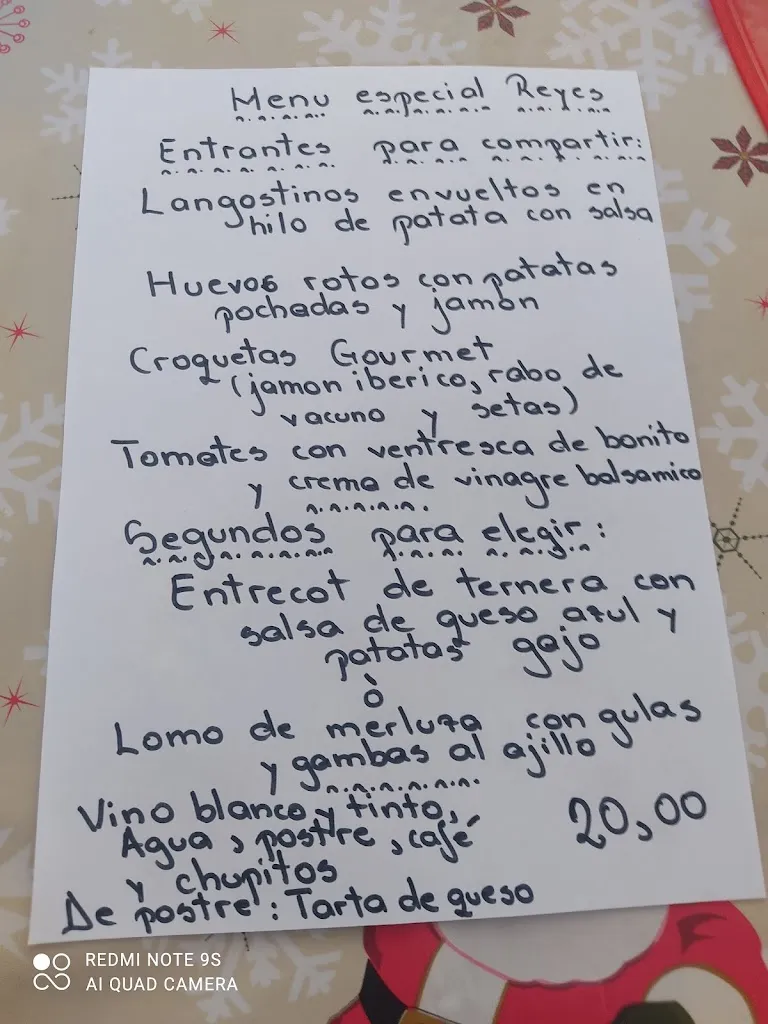 Menu especial Reyes
Entrantes para compartir:
Langostinos envueltos en
hilo de patata con salsa
Huevos rotos con patatas
pochadas y jamon
Croquetas Gourmet
(jamon iberico, rabo de
vacuno y setas)
Tomates con ventresca de bonito
y crema de vinagre balsamico
Segundos para elegir:
Entrecot de ternera con
salsa de queso azul y
patatas gajo
ò
Lomo de merluza con gulas
y gambas al ajillo
Vino blanco y tinto,
Agua, postre, café
y chupitos
20,00
De postre: Tarta de queso
REDMI NOTE 9S
AI QUAD CAMERA